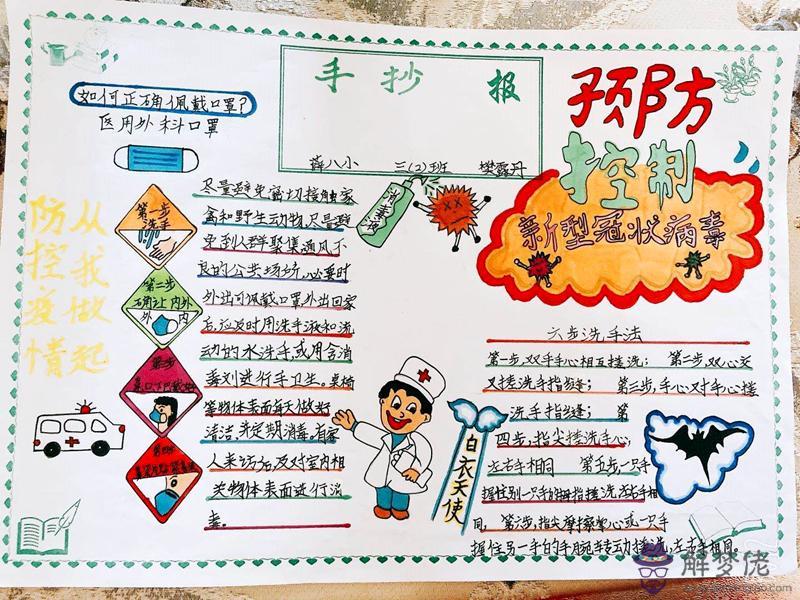 手抄报
薛八小 三(2)班 樊露丹
如何正确佩戴口罩?
医用外科口罩
从我做起
防控疫情
第一步
洗手
第二步
确认内外
外 内
消毒液
尽量避免密切接触家
禽和野生动物,尽量避
免到人群聚集通风不
良的公共场所,必要时
外出可佩戴口罩外出回家
后,应及时用洗手液和流
动的水洗手,或用含消
毒剂进行手卫生。桌椅
等物体表面每天做好
清洁,并定期消毒,有客
人来访后,及对室内相
关物体表面进行消
毒。
预防
控制
新型冠状病毒
白衣天使
六步洗手法
第一步,双手手心相互搓洗; 第二步,双心交
叉搓洗手指缝; 第三步,手心对手心搓
洗手指缝; 第
四步,指尖搓洗手心;
左右手相同 第五步,一只手
握住别一只手的拇指搓洗,左右手相
同, 第六步,指尖摩擦掌心或一只手
握住另一手的手腕转动搓洗,左右手相同。
解梦佬